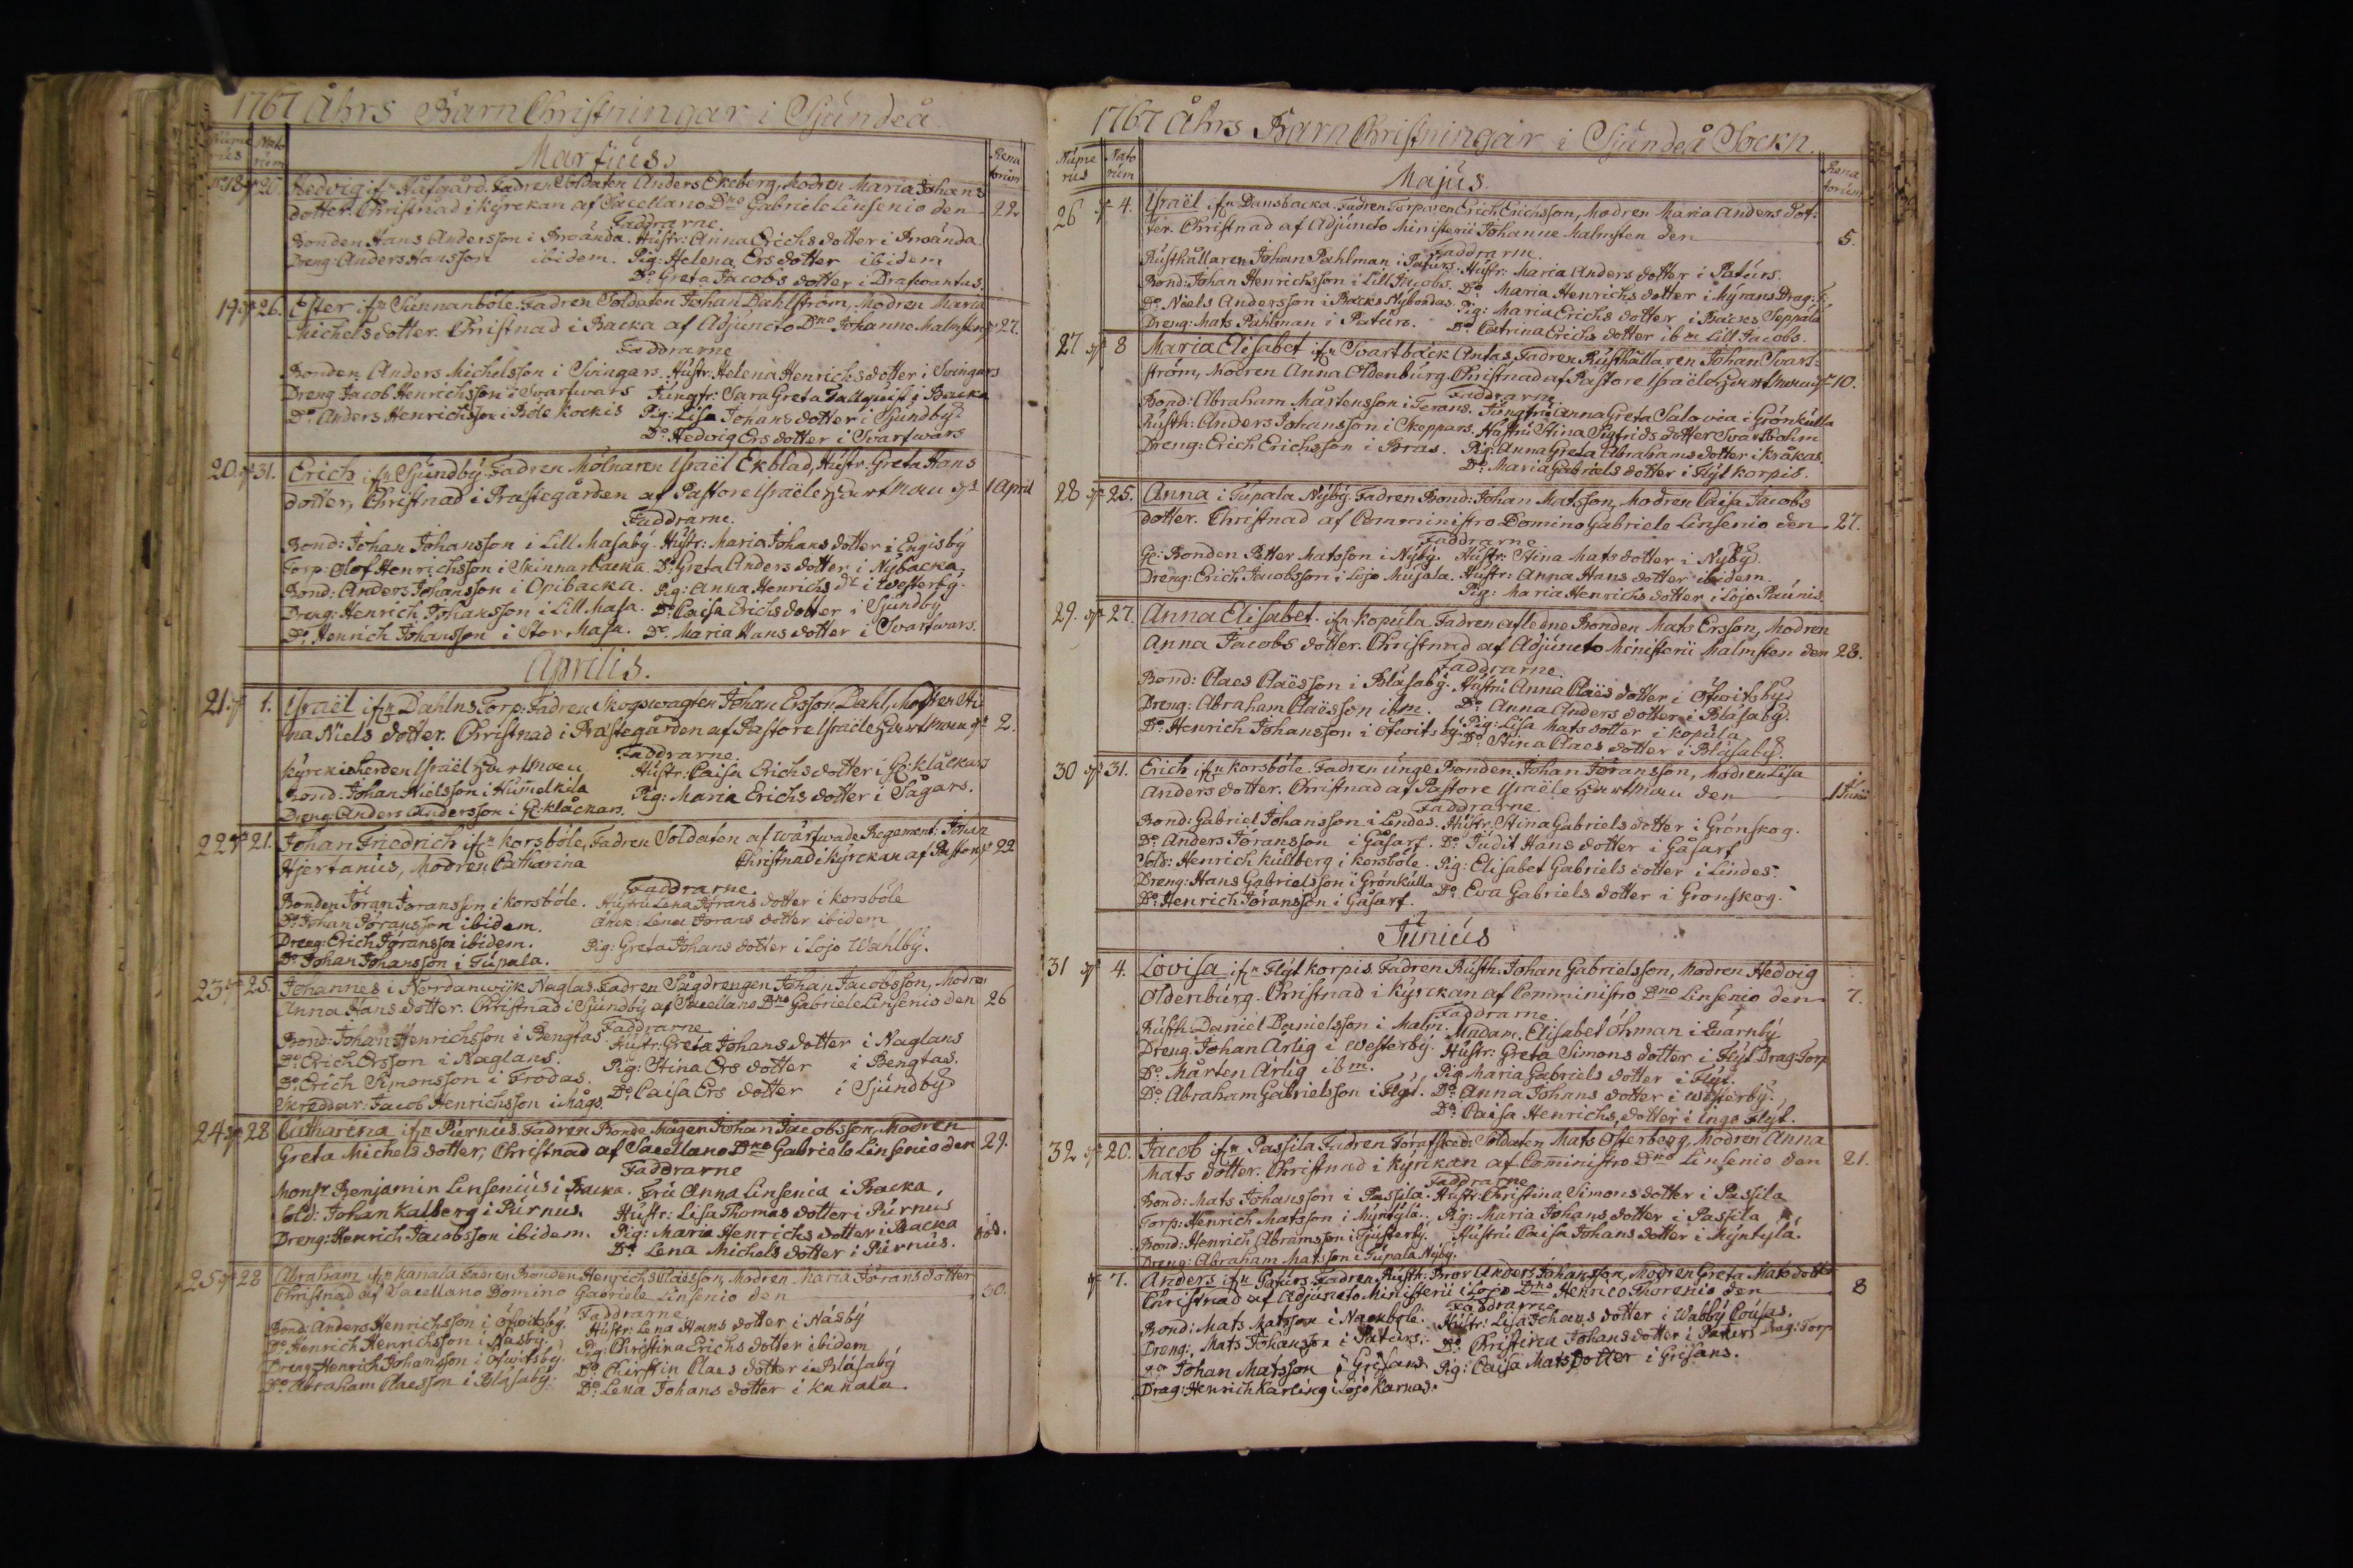 1767 Åhrs Barn Christningar i Sjundeå
Nume rus Nato rum Martius. Rena torum
18 20. Hedvig ifrn Håfgård. Fadren Soldaten Anders Ekeberg, Modren Maria Johans
dotter. Christnad i kyrckan af Sacellano Dno Gabriele Linsenio den 22
Faddrarne.
Bonden Hans Andersson i Broända. Hustr: Anna Erichs dotter i Broända
Dreng: Anders Hansson ibidem. Pig: Helena Ers dotter ibidem
Do Greta Jacobs dotter i
19 26. Ester ifrn Sunnanböle. Fadren Soldaten Johan Dahlström, Modren Maria
Michels dotter. Christnad i Backa af Adjuncto Dno Johanne Malmsten 27.
Faddrarne
Bonden Anders Michelsson i Svingars. Hustr. Helena Henrichs dotter i Svingars
Dreng Jacob Henrichsson i Svartwars Jungfr: Sara Greta Tallquist i Backa
Do Anders Henrichsson i Böle kockis Pig: Lisa Johans dotter i Sjundby
Do Hedvig Ers dotter i Svartwars
20. 31. Erich ifrn Sjundby. Fadren Mölnaren Israël Ekblad, Hustr. Greta Hans
dotter, Christnad i Prästegården af Pastore Israële Hartman 1 April
Faddrarne.
Bond: Johan Johansson i Lill Masaby. Hustr: Maria Johans dotter i Engisby
Torp: Olof Henrichsson i Skinnarbacka. Do Greta Anders dotter i Nybacka,
Bond: Anders Johansson i Opibacka. Pig: Anna Henrichs dr i Westerby.
Dreng: Henrich Johansson i Lill Masa. Do Caisa Erichs dotter i Sjundby,
Do Henrich Johansson i Stor Masa. Do Maria Hans dotter i Svartwars.
Aprilis.
21. 1. Israël ifrn Dahlns Torp. Fadren Skogswagten Johan Ersson Dahl, Modren Sti
na Niels dotter. Christnad i Prästegården af Pastore Israële Hartman 2.
Faddrarne.
kyrckioherden Israël Hartman Hustr: Caisa Erichs dotter i Gr: klåckars
Bond: Johan Nielsson i Humelkila Pig: Maria Erichs dotter i Sågars.
Dreng: Anders Andersson i Gr: klåckars.
22 21. Johan Friedrich ifrn korsböle, Fadren Soldaten af wärfwade Regement: Johan
Hjertanius, Modren Catharina Christnad i kyrckan af Pastore 22
Faddrarne.
Bonden Jöran Jöransson i korsböle. Hustru Lena Jörans dotter i korsböle
Do Johan Jöransson ibidem. Lena Jörans dotter ibidem
Dreng: Erich Jöransson ibidem. Pig: Greta Johans dotter i Lojo Wahlby.
Do Johan Johansson i Tupala.
23 25. Johannes i Nordanwijk Naglas. Fadren Sågdrengen Johan Jacobsson, Modren
Anna Hans dotter. Christnad i Sjundby af Sacellano Dno Gabriele Linsenio den 26
Faddrarne
Bond: Johan Henrichsson i Bengtas Hustr: Greta Johans dotter i Naglans
Do Erich Ersson i Naglans. Pig: Stina Ers dotter i Bengtas.
Do Erich Simonsson i Frodas. Do Caisa Ers dotter i Sjundby
Skreddar: Jacob Henrichsson i Mågs.
24 28 Catharina ifrn Purnus. Fadren Bonde Mågen Johan Jacobsson, Modren
Greta Michels dotter, Christnad af Sacellano Dno Gabriele Linsenio den 29.
Faddrarne
Monsr Benjamin Linsenius i Backa. Fru Anna Linsenia i Backa,
Sold: Johan Kalberg i Purnus. Hustr: Lisa Thomas dotter i Purnus
Dreng: Henrich Jacobsson ibidem. Pig: Maria Henrichs dotter i Backa
Do Lena Michels dotter i Purnus.
25 28 Abraham ifrn Kanala Fadren Bonden Henrich Claësson, Modren Maria Jörans dotter
Christnad af Sacellano Domino Gabriele Linsenio den 30.
Faddrarne
Bond: Anders Henrichsson i Öfwitsby. Hustr: Lena Hans dotter i Näsby
Do Henrich Henrichsson i Näsby. Pig: Christina Erichs dotter ibidem
Dreng: Henrich Johansson i Öfwitsby. Do Chirstin Claes dotter i Blåsaby
Do Abraham Claesson i Blåsaby. Do Lena Johans dotter i kanala.
1767 Åhrs Barn Christningar i Sjundeå Sockn.
Nume rus Nato rum Majus. Rena torum
26 4. Israël ifrn Dansbacka. Fadren Torparen Erich Erichsson, Modren Maria Anders dot:
ter. Christnad af Adjuncto Ministerii Johanne Malmsten den 5.
Faddrarne.
Rusthållaren Johan Pahlman i Paturs. Hustr: Maria Anders dotter i Paturs.
Bond: Johan Henrichsson i Lill Jacobs. Do Maria Henrichs dotter i Myrans Drag: T.
Do Niels Andersson i Bäcks Nybondas. Pig: Maria Erichs dotter i Bäcks Seppälä
Dreng: Mats Pahlman i Paturs. Do Catrina Erichs dotter ibm Lill Jacobs.
27 8 Maria Elisabet ifrn Svartbäck Antas, Fadren Rusthållaren Johan Svart-
ström, Modren Anna Oldenburg. Christnad af Pastore Israële Hartman 10.
Faddrarne.
Bond: Abraham Mårtensson i Terans. Jungfru Anna Greta Salovia i Grönkulla
Rusth: Anders Johansson i Skeppars. Hustru Stina Sigfrids dotter Svartbohm
Dreng: Erich Erichsson i Bras. Pig: Anna Greta Abrahams dotter i kråkas.
Do Maria Gabriels dotter i Flyt korpis.
28 25. Anna i Tupala Nyby. Fadren Bond: Johan Matsson, Modren Caisa Jacobs
dotter. Christnad af Comministro Domino Gabriele Linsenio den 27.
Faddrarne
Gr: Bonden Petter Matsson i Nyby. Hustr: Stina Mats dotter i Nyby
Dreng: Erich Jacobsson i Lojo Musala. Hustr: Anna Hans dotter ibidem.
Pig: Maria Henrichs dotter i Lojo Paunis.
29. 27. Anna Elisabet. ifrn kopula. Fadren afledne Bonden Mats Ersson, Modren
Anna Jacobs dotter. Christnad af Adjuncto Ministerii Malmsten den 28.
Faddrarne.
Bond: Claes Claësson i Blåsaby. Hustru Anna Claës dotter i Öfwitsby
Dreng: Abraham Claësson ibm. Do Anna Anders dotter i Blåsaby.
Do Henrich Johansson i Öfwitsby. Pig: Lisa Mats dotter i kopula,
Do Stina Claes dotter i Blåsaby.
30 31. Erich ifrn korsböle. Fadren unge Bonden Johan Jöransson, Modren Lisa
Anders dotter. Christnad af Pastore Israële Hartman den 1 Junii
Faddrarne.
Bond: Gabriel Johansson i Lindes. Hustr: Stina Gabriels dotter i Grönskog.
Do Anders Jöransson i Gåsarf. Do Judit Hans dotter i Gåsarf
Sold: Henrich kullberg i korsböle. Pig: Elisabet Gabriels dotter i Lindes.
Dreng: Hans Gabrielsson i Grönkulla Do Eva Gabriels dotter i Grönskog.
Do Henrich Jöransson i Gåsarf.
Junius
31 4. Lovisa ifrn Flyt korpis. Fadren Rusth: Johan Gabrielsson, Modren Hedvig
Oldenburg. Christnad i kyrckan af Comministro Dno Linsenio den 7.
Faddrarne.
Rusth: Daniel Danielsson i Malm. Madam. Elisabet Öhman i Quarnby
Dreng: Johan Ärlig i Westerby. Hustr: Greta Simons dotter i Flyt Drag: Torp
Do Mårten Ärlig ibm. Pig Maria Gabriels dotter i Flyt.
Do Abraham Gabrielsson i Flyt. Do Anna Johans dotter i Westerby.
Do Caisa Henrichs dotter i Inge Flyt.
32 20. Jacob ifrn Passila. Fadren Förafskeda Soldaten Mats Österberg, Modren Anna
Mats dotter. Christnad i kyrckan af Cominstro Dno Linsenio den 21.
Faddrarne
Bond: Mats Johansson i Passila. Hustr: Christina Simons dotter i Passila
Torp: Henrich Matsson i Myntylä. Pig: Maria Johans dotter i Passila
Bond: Henrich Abramsson i Tjusterby. Hustru Caisa Johans dotter i Myntylä.
Dreng: Abraham Matsson i Tupala Nyby.
7. Anders ifrn Paturs. Fadren Rusth: Bror Anders Johansson, Modren Greta Mats dotter
Christnad af Adjuncto Ministerii i Lojo Dno Henrico Thorenio den 8
Faddrarne
Bond: Mats Matsson i Nackböle. Hustr: Lisa Johans dotter i Wabby Cousas.
Dreng: Mats Johansson i Paturs. Do Christina Johans dotter i Paturs Drag: Torp
Do Johan Matsson i Grisans. Pig: Caisa Mats Dotter i Grisans.
Drag: Henrich Karling i Lojo Karnas.